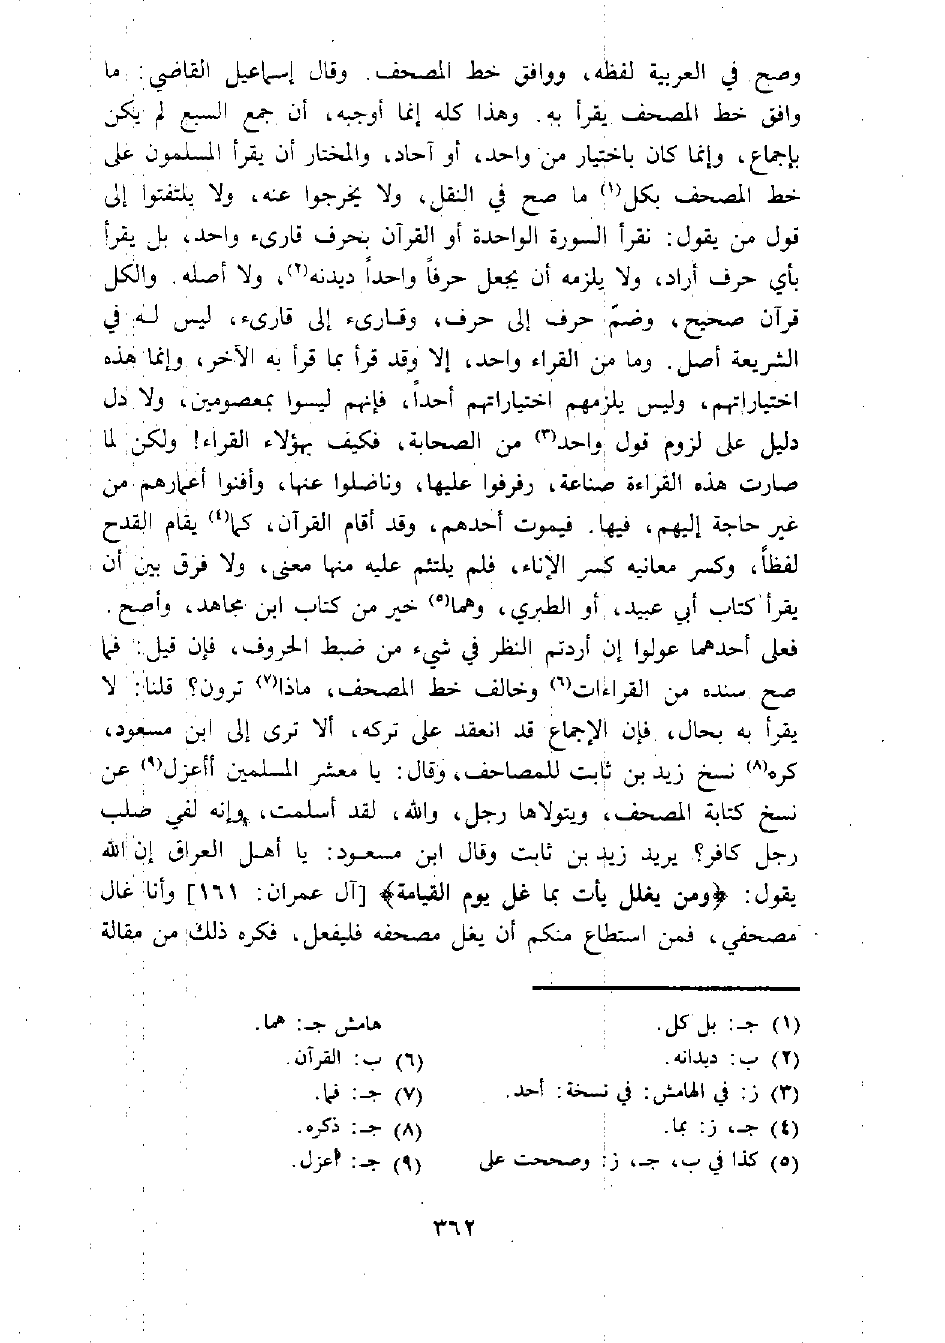 وصح في العربية لفظه، ووافق خط المصحف. وقال إسماعيل القاضي: ما
وافق خط المصحف يقرأ به. وهذا كله إنما أوجبه، أن جمع السبع لم يكن
بإجماع، وإنما كان باختيار من واحد، أو آحاد، والمختار أن يقرأ المسلمون على
خط المصحف بكل(١) ما صح في النقل، ولا يخرجوا عنه، ولا يلتفتوا إلى
قول من يقول: نقرأ السورة الواحدة أو القرآن بحرف قارىء واحد، بل يقرأ
بأي حرف أراد، ولا يلزمه أن يجعل حرفاً واحداً ديدنه(٢)، ولا أصله. والكل
قرآن صحيح، وضمّ حرف إلى حرف، وقارىء إلى قارىء، ليس له في
الشريعة أصل. وما من القراء واحد، إلا وقد قرأ بما قرأ به الآخر، وإنما هذه
اختياراتهم، وليس يلزمهم اختياراتهم أحداً، فإنهم ليسوا بمعصومين، ولا دل
دليل على لزوم قول واحد(٣) من الصحابة، فكيف بهؤلاء القراء! ولكن لما
صارت هذه القراءة صناعة، رفرفوا عليها، وناضلوا عنها، وأفنوا أعمارهم من
غير حاجة إليهم، فيها. فيموت أحدهم، وقد أقام القرآن، كما(٤) يقام القدح
لفظاً، وكسر معانيه كسر الإناء، فلم يلتئم عليه منها معنى، ولا فرق بين أن
يقرأ كتاب أبي عبيد، أو الطبري، وهما(٥) خير من كتاب ابن مجاهد، وأصح.
فعلى أحدهما عولوا إن أردتم النظر في شيء من ضبط الحروف، فإن قيل: فما
صح سنده من القراءات(٦) وخالف خط المصحف، ماذا(٧) ترون؟ قلنا: لا
يقرأ به بحال، فإن الإجماع قد انعقد على تركه، ألا ترى إلى ابن مسعود،
كره(٨) نسخ زيد بن ثابت للمصاحف، وقال: يا معشر المسلمين أأعزل(٩) عن
نسخ كتابة المصحف، ويتولاها رجل، والله، لقد أسلمت، وإنه لفي صلب
رجل كافر؟ يريد زيد بن ثابت وقال ابن مسعود: يا أهل العراق إن الله
يقول: ﴿ومن يغلل يأت بما غل يوم القيامة﴾ [آل عمران: ١٦١] وأنا غال
مصحفي، فمن استطاع منكم أن يغل مصحفه فليفعل، فكره ذلك من مقالة
(١) جـ: بل كل.
(٢) ب: ديدانه.
(٣) ز: في الهامش: في نسخة: أحد.
(٤) جـ، ز: بما.
(٥) كذا في ب، جـ، ز: وصححت على
هامش جـ: هما.
(٦) ب: القرآن.
(٧) جـ: فما.
(٨) جـ: ذكره.
(٩) جـ: أعزل.
٣٦٢